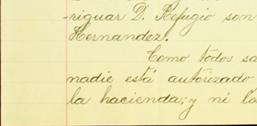 riguar D. Refugio son
Hernandez.
Como todos sa
nadie está autorizado
la hacienda; y ni la